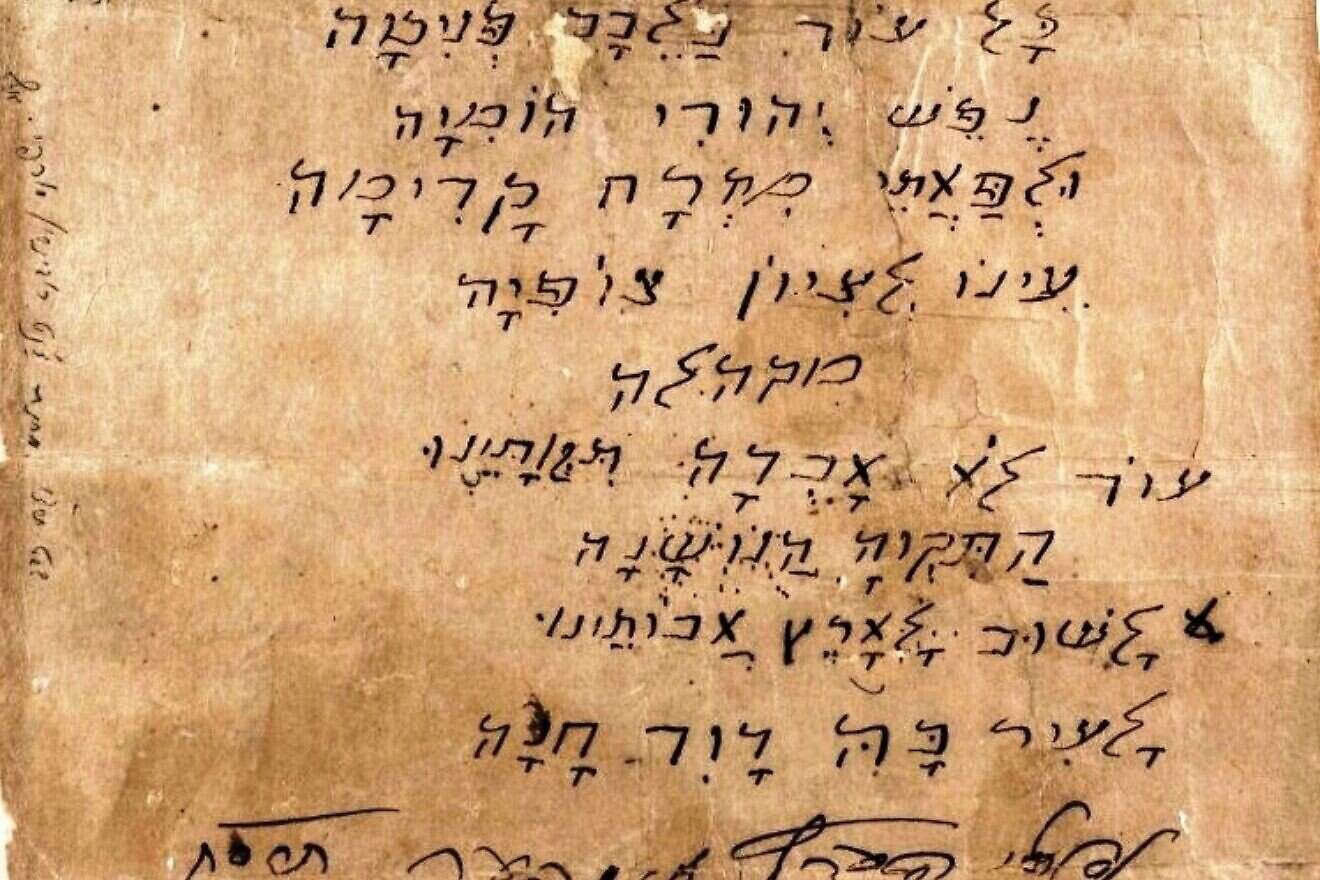 כָּל עוֹד בַּלֵּבָב פְּנִימָה
נֶפֶשׁ יְהוּדִי הוֹמִיָּה
וּלְפַאֲתֵי מִזְרָח קָדִימָה
עֵינוֹ לְצִיּוֹן צוֹפִיָּה
מקהלה
עוֹד לֹא אָבְדָה תִּקְוָתֵינוּ
הַתִּקְוָה הַנּוֹשָׁנָה
לָשׁוּב לְאֶרֶץ אֲבוֹתֵינוּ
לָעִיר בָּהּ דָּוִד חָנָה